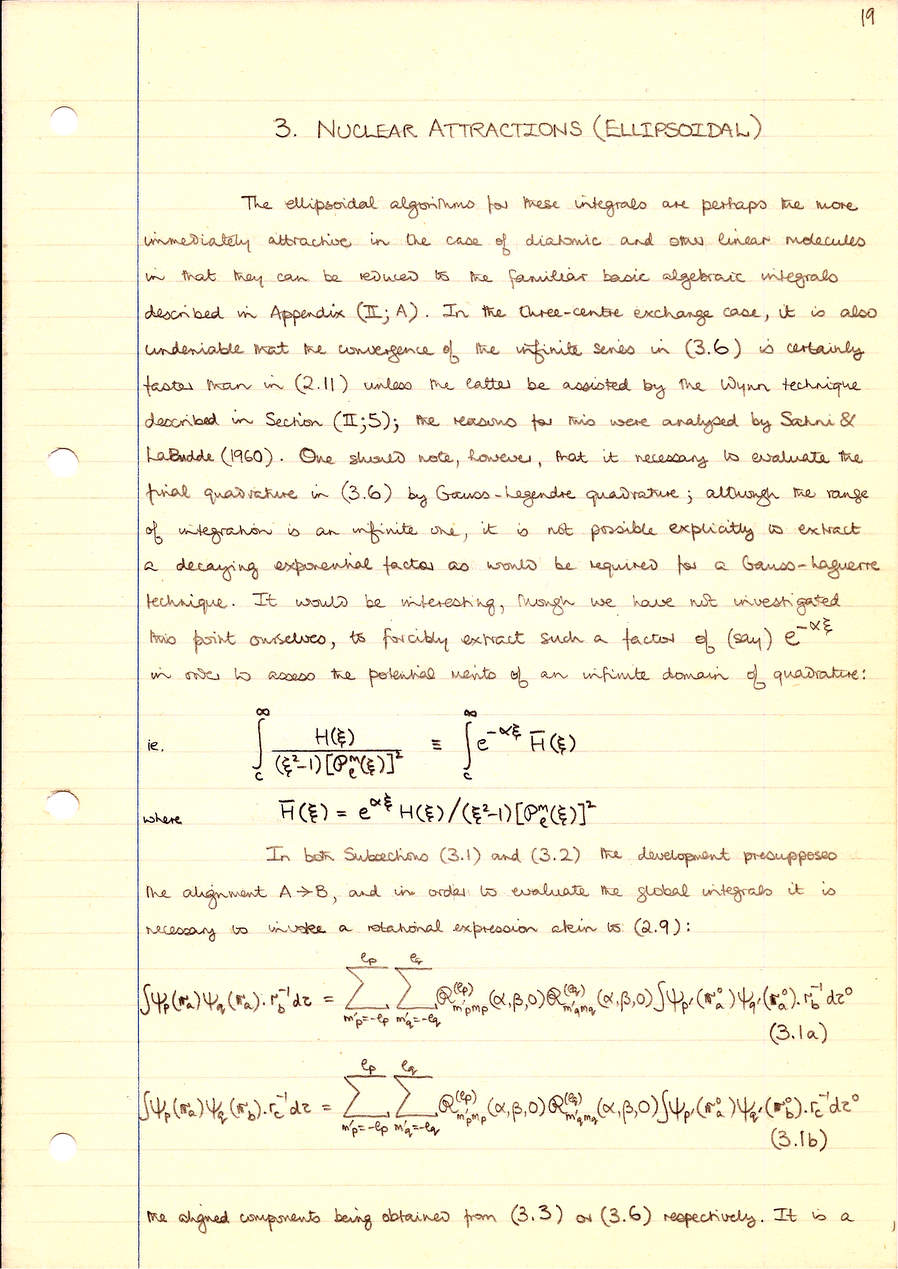 19
3. NUCLEAR ATTRACTIONS (ELLIPSOIDAL)
The ellipsoidal algorithms for these integrals are perhaps the more
immediately attractive in the case of diatomic and other linear molecules
in that they can be reduced to the familiar basic algebraic integrals
described in Appendix (II; A). In the three-centre exchange case, it is also
undeniable that the convergence of the infinite series in (3.6) is certainly
faster than in (2.11) unless the latter be assisted by the Wynn technique
described in Section (II;5); the reasons for this were analysed by Sahni &
LaBudde (1960). One should note, however, that it necessary to evaluate the
final quadrature in (3.6) by Gauss-Legendre quadrature; although the range
of integration is an infinite one, it is not possible explicitly to extract
a decaying exponential factor as would be required for a Gauss-Laguerre
technique. It would be interesting, though we have not investigated
this point ourselves, to forcibly extract such a factor of (say) e^{-αξ}
in order to assess the potential merits of an infinite domain of quadrature:
ie. ∫_c^∞ H(ξ) / (ξ²-1)[𝒫_ℓ^m(ξ)]² ≡ ∫_c^∞ e^{-αξ} H̄(ξ)
where H̄(ξ) = e^{αξ} H(ξ)/(ξ²-1)[𝒫_ℓ^m(ξ)]²
In both Subsections (3.1) and (3.2) the development presupposes
the alignment A→B, and in order to evaluate the global integrals it is
necessary to invoke a rotational expression akin to (2.9):
∫ψ_p(𝐫_a)ψ_q(𝐫_a).r_b^{-1}dτ = Σ_{m'_p=-ℓ_p}^{ℓ_p} Σ_{m'_q=-ℓ_q}^{ℓ_q} ℛ_{m'_p m_p}^{(ℓ_p)}(α,β,0)ℛ_{m'_q m_q}^{(ℓ_q)}(α,β,0)∫ψ_{p'}(𝐫_a^0)ψ_{q'}(𝐫_a^0).r_b^{-1}dτ^0
(3.1a)
∫ψ_p(𝐫_a)ψ_q(𝐫_b).r_c^{-1}dτ = Σ_{m'_p=-ℓ_p}^{ℓ_p} Σ_{m'_q=-ℓ_q}^{ℓ_q} ℛ_{m'_p m_p}^{(ℓ_p)}(α,β,0)ℛ_{m'_q m_q}^{(ℓ_q)}(α,β,0)∫ψ_{p'}(𝐫_a^0)ψ_{q'}(𝐫_b^0).r_c^{-1}dτ^0
(3.1b)
the aligned components being obtained from (3.3) or (3.6) respectively. It is a